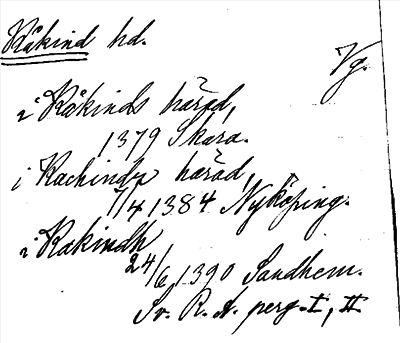 Kåkind hd.
Vg.
i Kåkinds härad,
1379 Skara.
i Kachinda härad,
7/4 1384 Nyköping.
i Kakindh
24/6 1390 Sandhem.
Sv. R. A. perg. I, II.